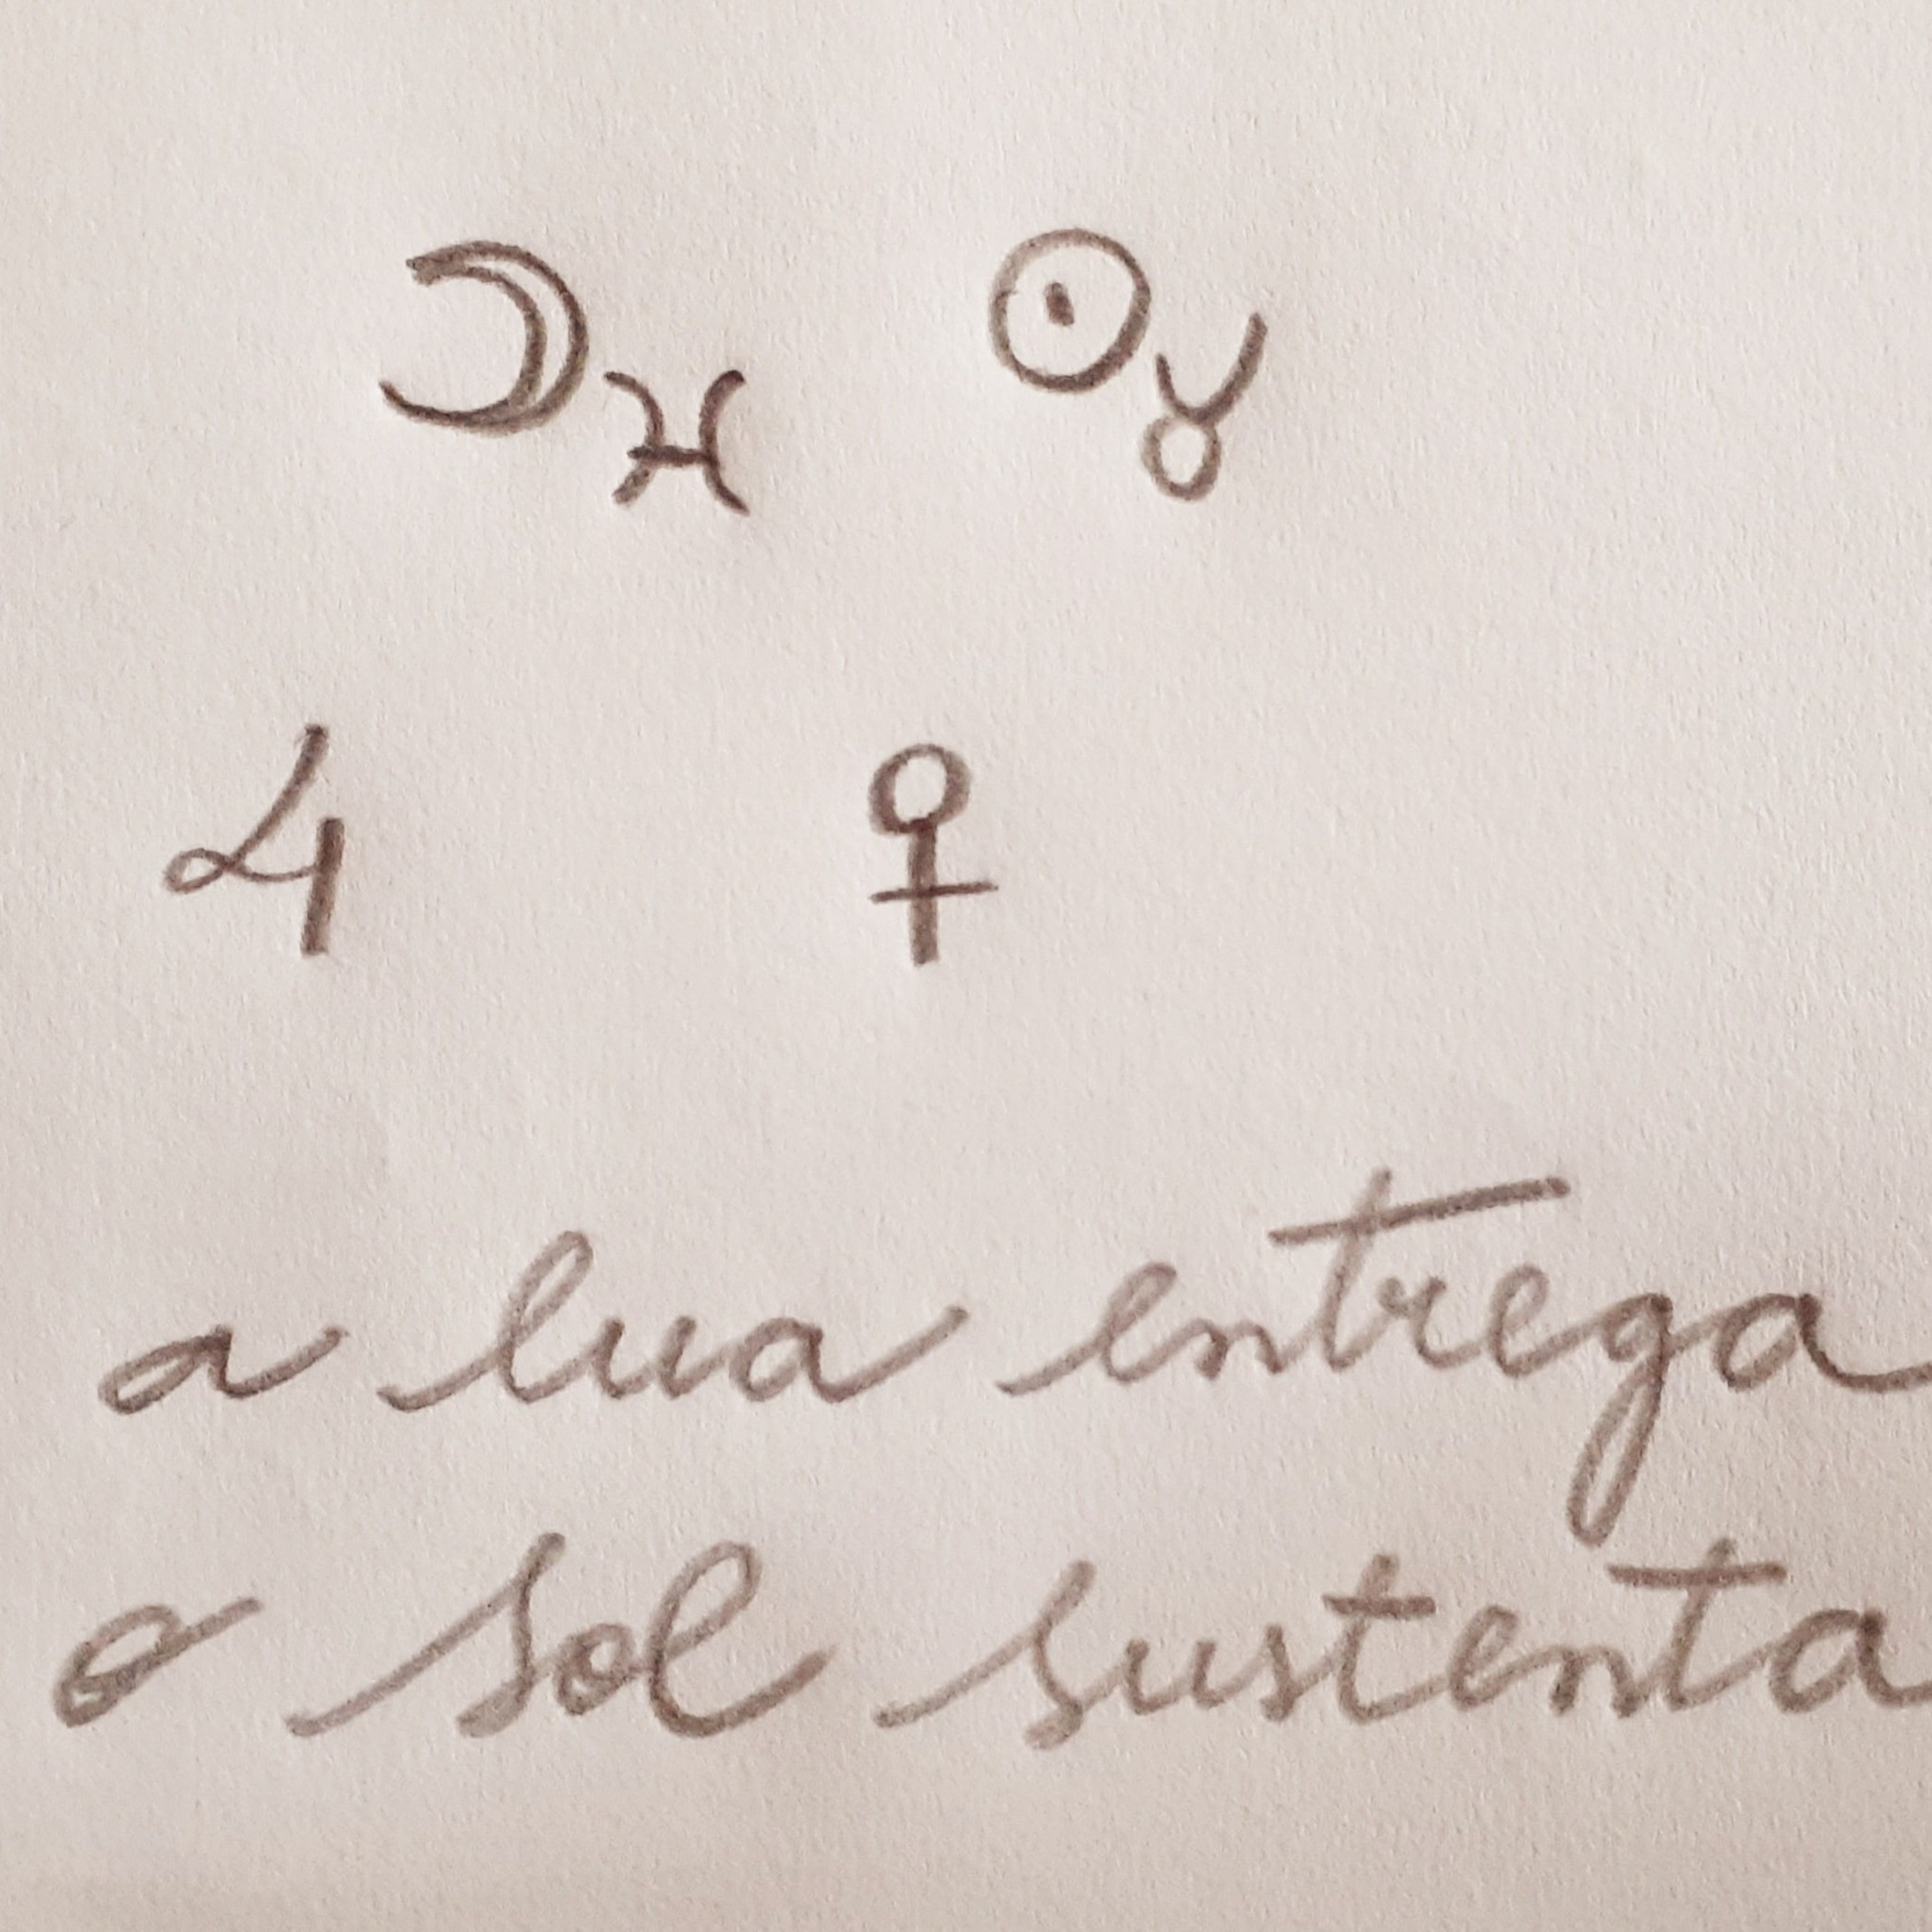 ☽♓ ☉♉
♃ ♀
a lua entrega
o sol sustenta